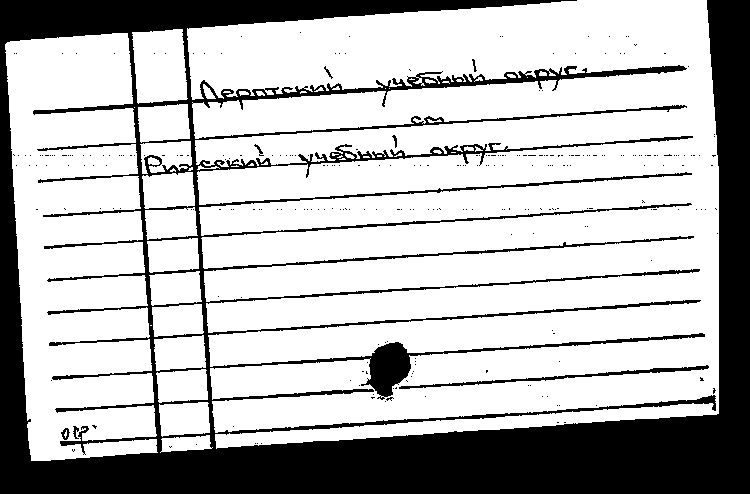 Дерптский учебный округ.
см
Рижский учебный округ.